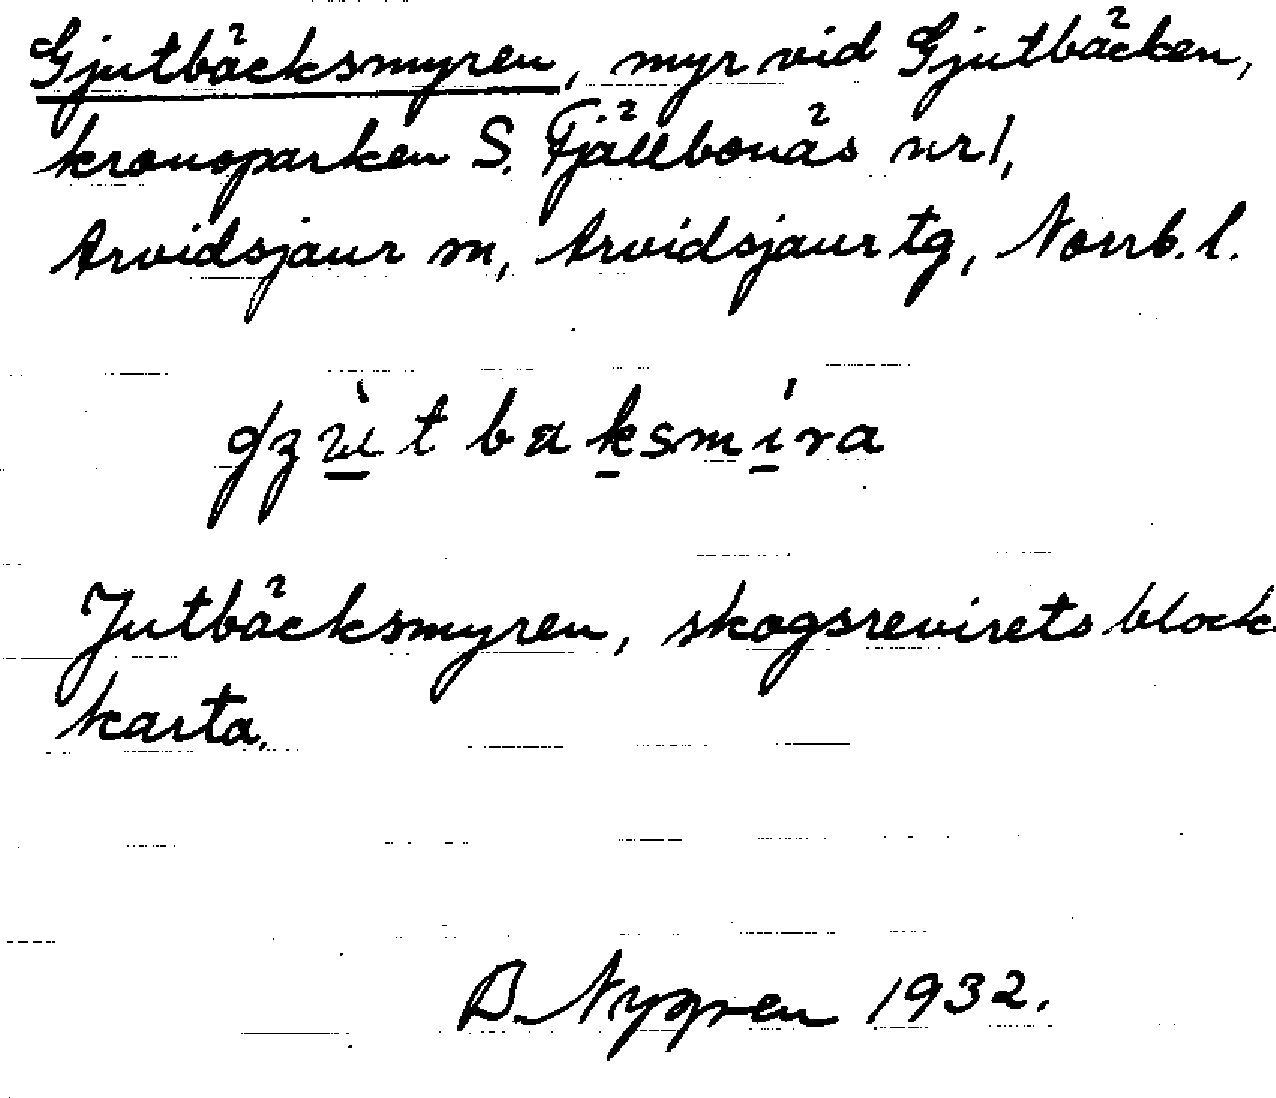 Gjutbäcksmyren, myr vid Gjutbäcken,
kronoparken S. Fjällbonäs nr 1,
Arvidsjaur sn, Arvidsjaur tg, Norrb. l.
Jutbäcksmyren, skogsrevirets block
karta.
B. Nygren 1932.